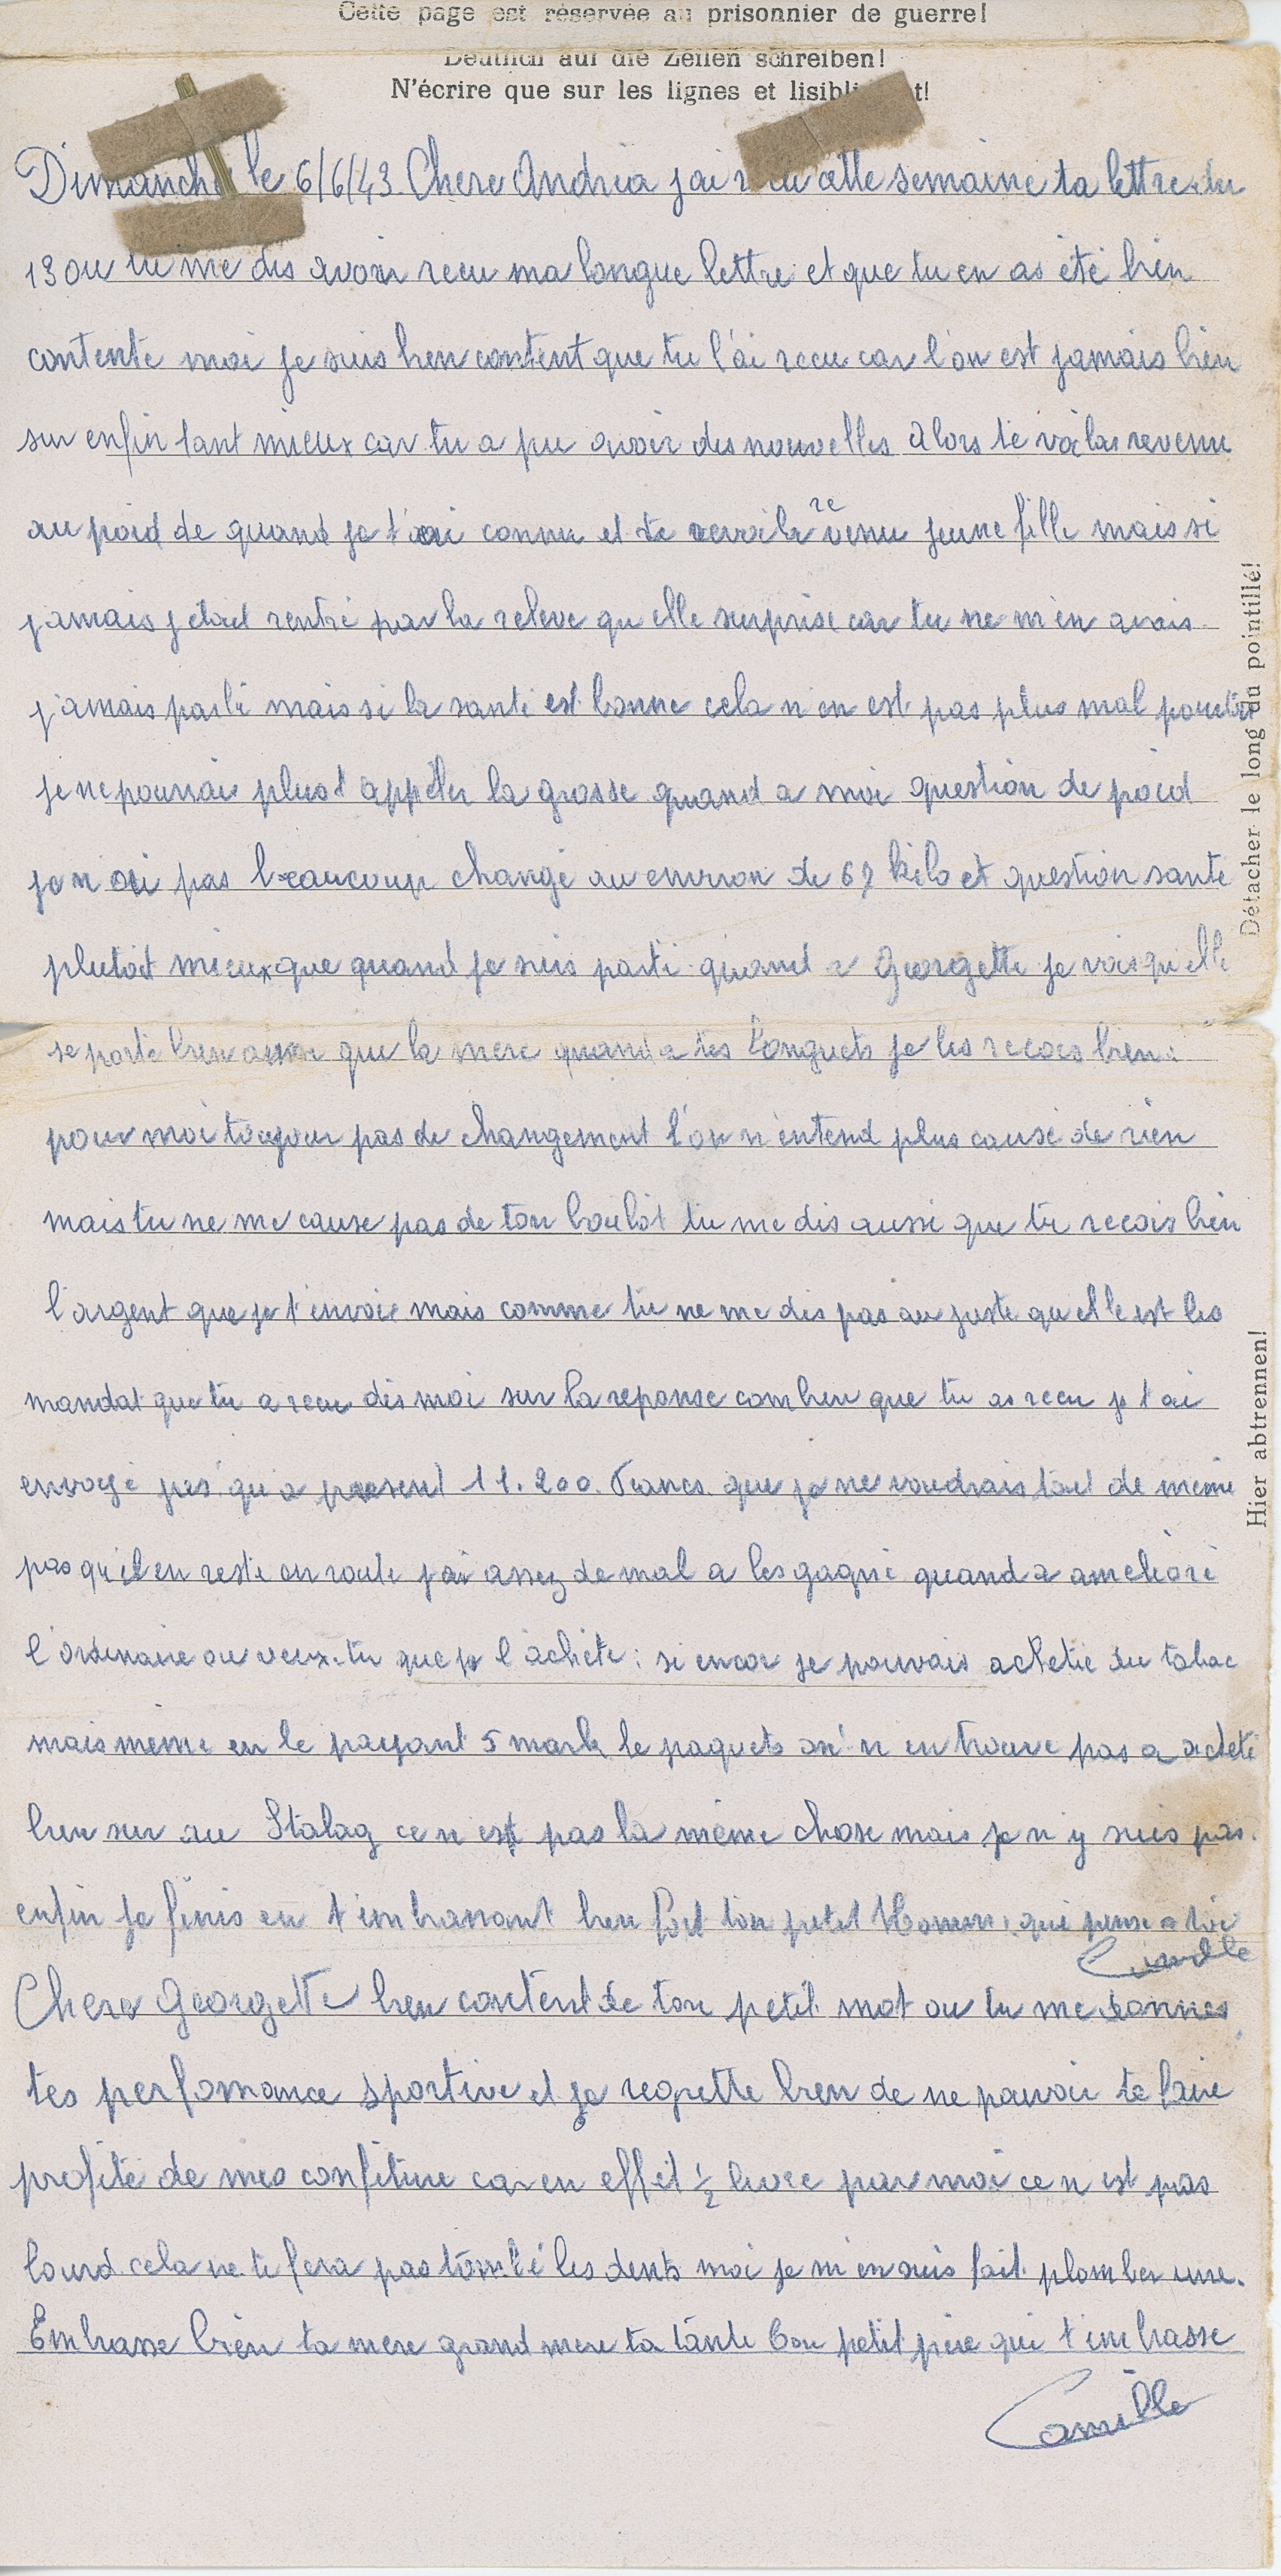 Cette page est réservée au prisonnier de guerre!
Deutlich auf die Zeilen schreiben!
N'écrire que sur les lignes et lisiblement!
Dimanche le 6/6/43. Chere Andréa j'ai recu cette semaine ta lettre du
13 ou tu me dis avoir recu ma longue lettre et que tu en as été bien
contente moi je suis bien content que tu l'ai recu car l'on est jamais bien
sur enfin tant mieux car tu a pu avoir des nouvelles alors te voila revenu
au poid de quand je t'ai connu et te revoila revenu jeune fille mais si
jamais j'etait rentré par la releve qu elle surprise car tu ne m'en avais
jamais parlé mais si la santé est bonne cela n'en est pas plus mal pour toi
je ne pourrais plus t appeler la grosse quand a moi question de poid
je n ai pas beaucoup changé au environ de 67 kilo et question santé
plutot mieux que quand je suis parti quand a Georgette je vois qu elle
se porte bien aussi que la mere quand a tes longuets je les recois bien
pour moi toujour pas de changement l'on n'entend plus causé de rien
mais tu ne me cause pas de ton boulot tu me dis aussi que tu recois bien
l'argent que je t'envoie mais comme tu ne me dis pas au juste qu elle est les
mandat que tu a recu dis moi sur la reponse combien que tu as recu je t'ai
envoyé jus'qu'a present 11.200. Francs que je ne voudrais tout de même
pas qu'il en reste en route j'ai assez de mal a les gagné quand a amélioré
l'ordinaire ou veux-tu que je l'achète: si encor je pouvais acheté du tabac
mais même en le payant 5 mark le paquets on n'en trouve pas a acheté
bien sur au Stalag ce n'est pas la même chose mais je n'y suis pas.
enfin je finis en t'embrassant bien fort ton petit Homme qui pense a toi
Camille
Chere Georgette bien content de ton petit mot ou tu me donnes
tes perfomance sportive et je regrette bien de ne pouvoir te faire
profité de mes confiture car en effet ½ livre par mois ce n'est pas
lourd cela ne te fera pas tombé les dents moi je m'en suis fait plomber une.
Embrasse bien ta mere grand mere ta tante ton petit père qui t'embrasse
Camille
Détacher le long du pointillé!
Hier abtrennen!